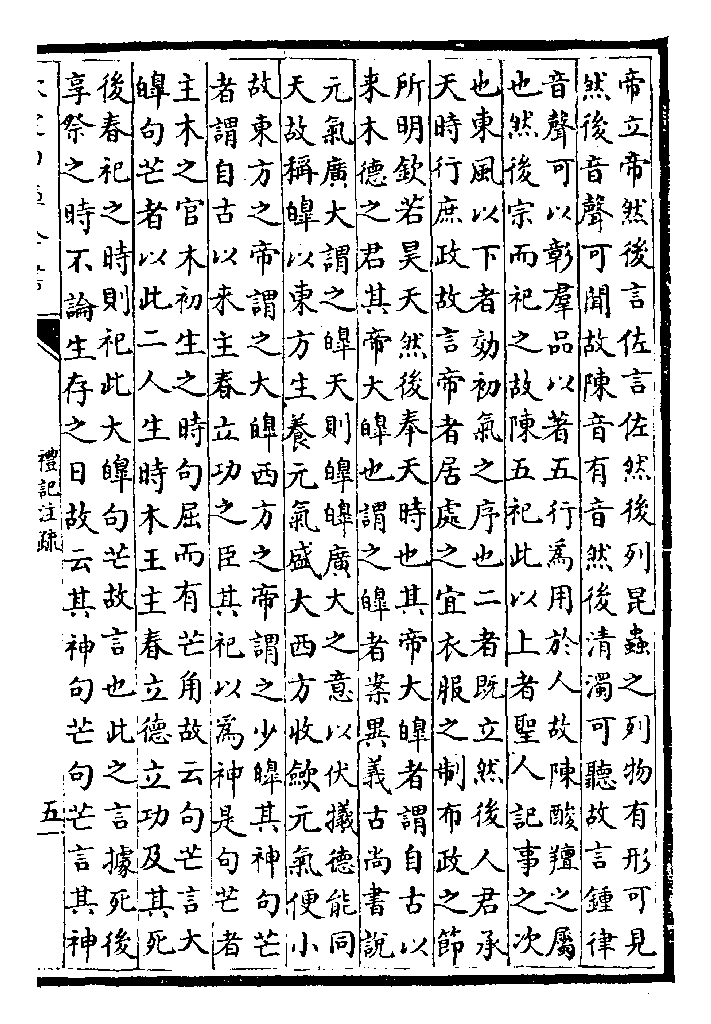 帝立帝然後言佐言佐然後列昆蟲之列物有形可見
然後音聲可聞故陳音有音然後清濁可聽故言鍾律
音聲可以彰羣品以著五行爲用於人故陳酸羶之屬
也然後宗而祀之故陳五祀此以上者聖人記事之次
也東風以下者効初氣之序也二者既立然後人君承
天時行庶政故言帝者居處之宜衣服之制布政之節
所明欽若昊天然後奉天時也其帝大皥者謂自古以
来木德之君其帝大皥也謂之皥者案異義古尚書說
元氣廣大謂之皥天則皥皥廣大之意以伏犧德能同
天故稱皥以東方生養元氣盛大西方收歛元氣便小
故東方之帝謂之大皥西方之帝謂之少皥其神句芒
者謂自古以來主春立功之臣其祀以爲神是句芒者
主木之官木初生之時句屈而有芒角故云句芒言大
皥句芒者以此二人生時木王主春立德立功及其死
後春祀之時則祀此大皥句芒故言也此之言據死後
享祭之時不論生存之日故云其神句芒句芒言其神
禮記注疏
五